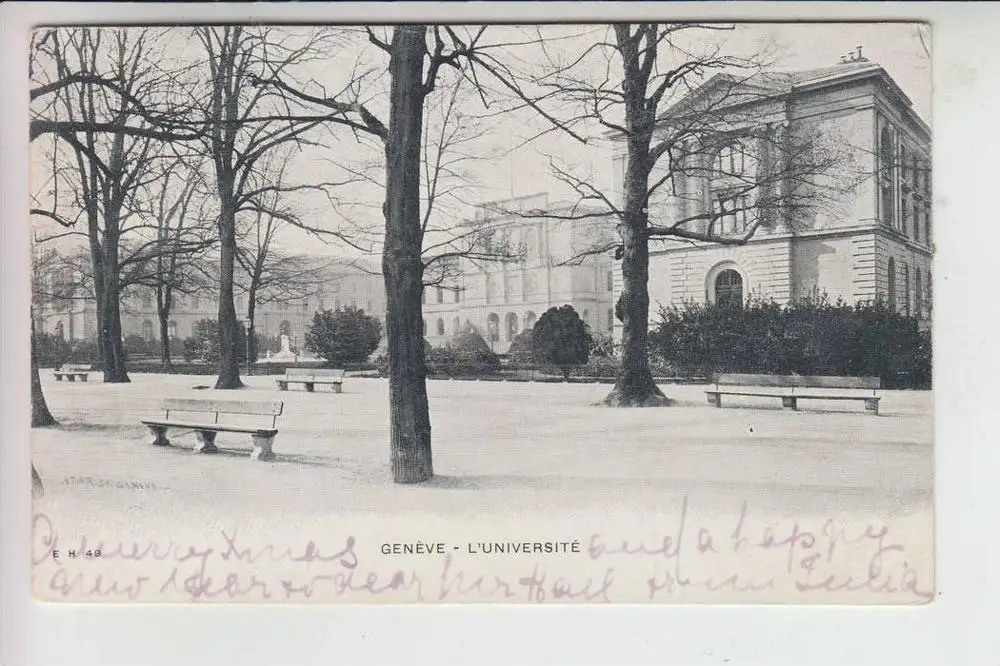 ATAR S.A. GENÈVE
E H 49
GENÈVE - L'UNIVERSITÉ
A merry Xmas and a happy
new Year to dear Mr Hall from Julia